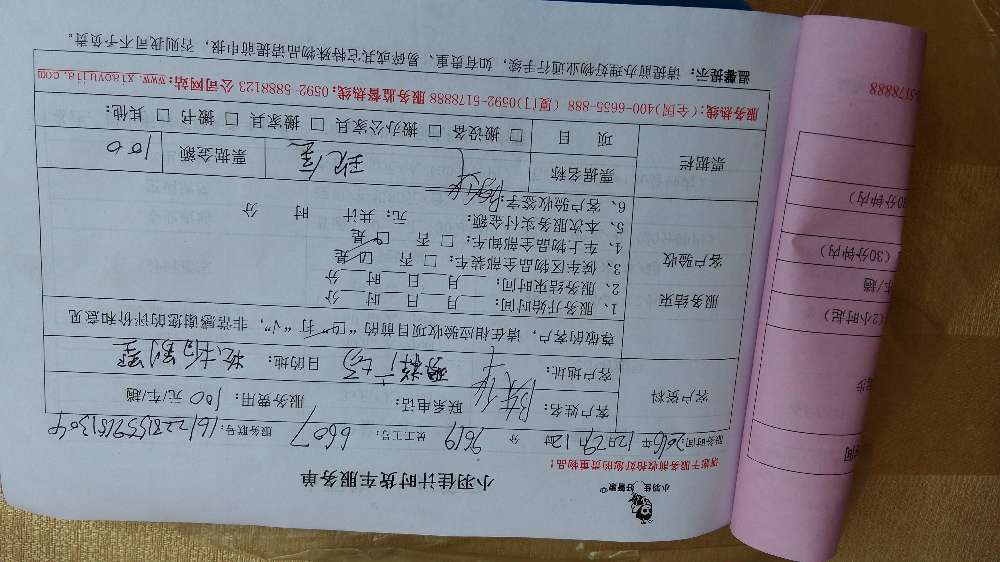 小羽佳 好管家
小羽佳计时货车服务单
请您于服务前收拾您的贵重物品！
服务时间:2016年12月29日12时 分 9619 员工工号: 6607 服务联号:
客户资料
客户姓名: 联系电话: 服务费用: 100 元/车/趟
客户地址: 目的地:
服务结束 客户验收
尊敬的客户，请在相应验收项目前的“口”打“√”，非常感谢您的评价和意见
1、服务开始时间: 月 日 时 分
2、服务结束时间: 月 日 时 分
3、候车区物品全部装车: □ 否 □ 是
4、车上物品全部卸车: □ 否 □ 是
5、本次服务实付金额: 元; 共计 时 分
6、客户验收签字:
票据栏
票据名称 现金 票据金额 100
项 目 □ 搬设备 □ 搬办公家具 □ 搬家具 □ 搬书 □ 其他:
服务热线:(全国)400-6655-888 (厦门)0592-5178888 服务监督热线:0592-5888123 公司网站:www.xiaoyujia.com
温馨提示: 请提前办理好物业通行手续，如有贵重、易碎或其它特殊物品请提前申报，否则我司不予负责。
5178888
30分钟内)
(30分钟内)
车/趟
(2小时起)
步
间